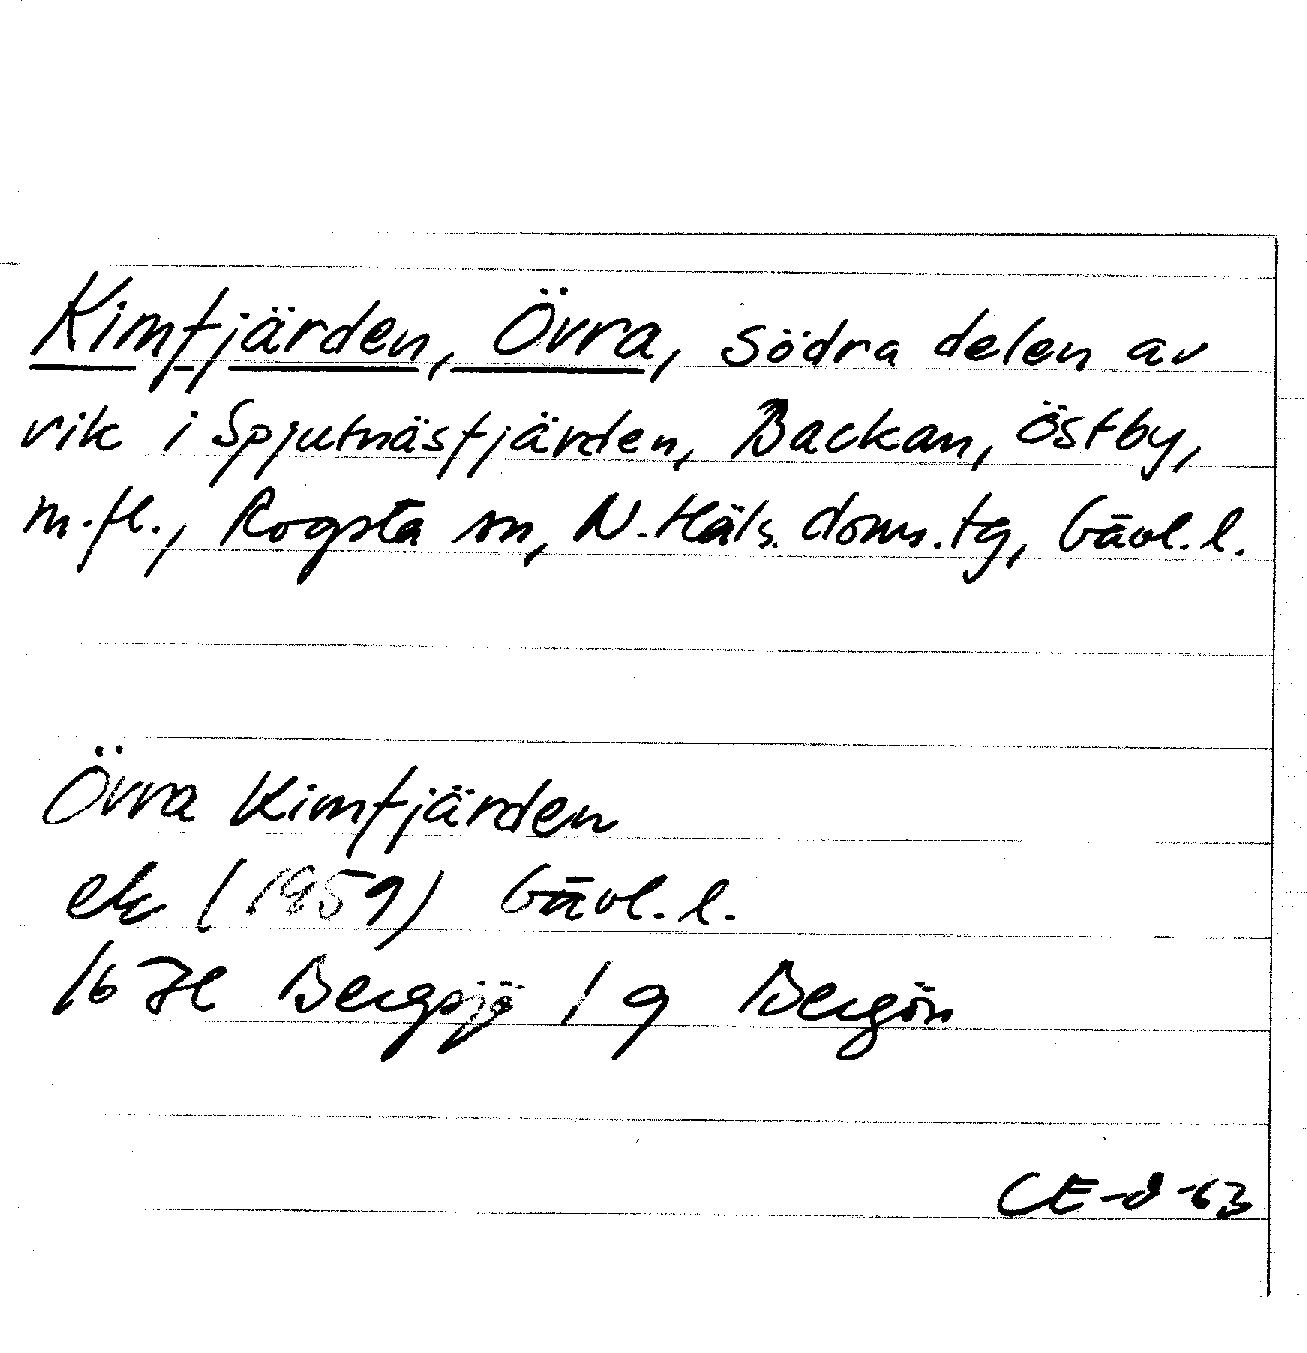 Kimfjärden, Övra, södra delen av
vik i Spjutnäsfjärden, Backan, Östby,
m.fl., Rogsta sn, N.Häls. doms.tg, Gävl.l.
Övra Kimfjärden
ek (1959) Gävl.l.
16 H Bergsjö 1 g Bergön
CE-8-63